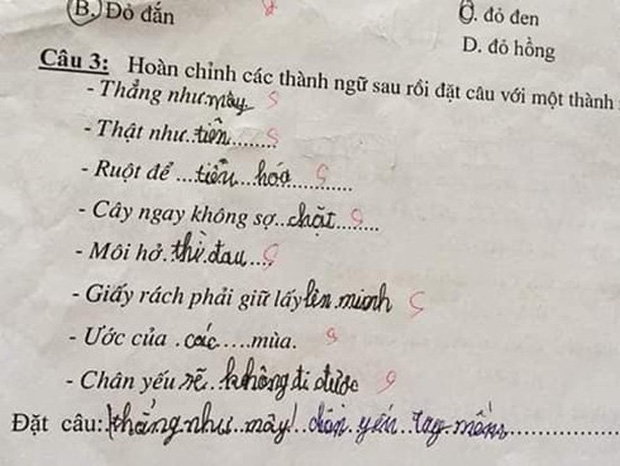 B. Đỏ đắn
C. đỏ đen
D. đỏ hồng
Câu 3: Hoàn chỉnh các thành ngữ sau rồi đặt câu với một thành
- Thẳng như mây S
- Thật như..tiên........ S
- Ruột để ...tiêu...hóa......... S
- Cây ngay không sợ..chặt....... S
- Môi hở.thì.đau.... S
- Giấy rách phải giữ lấy lên mình S
- Ước của .các....mùa. S
- Chân yếu sẽ..không đi được S
Đặt câu: thẳng như..mây!..chân.yếu..tay mềm..................